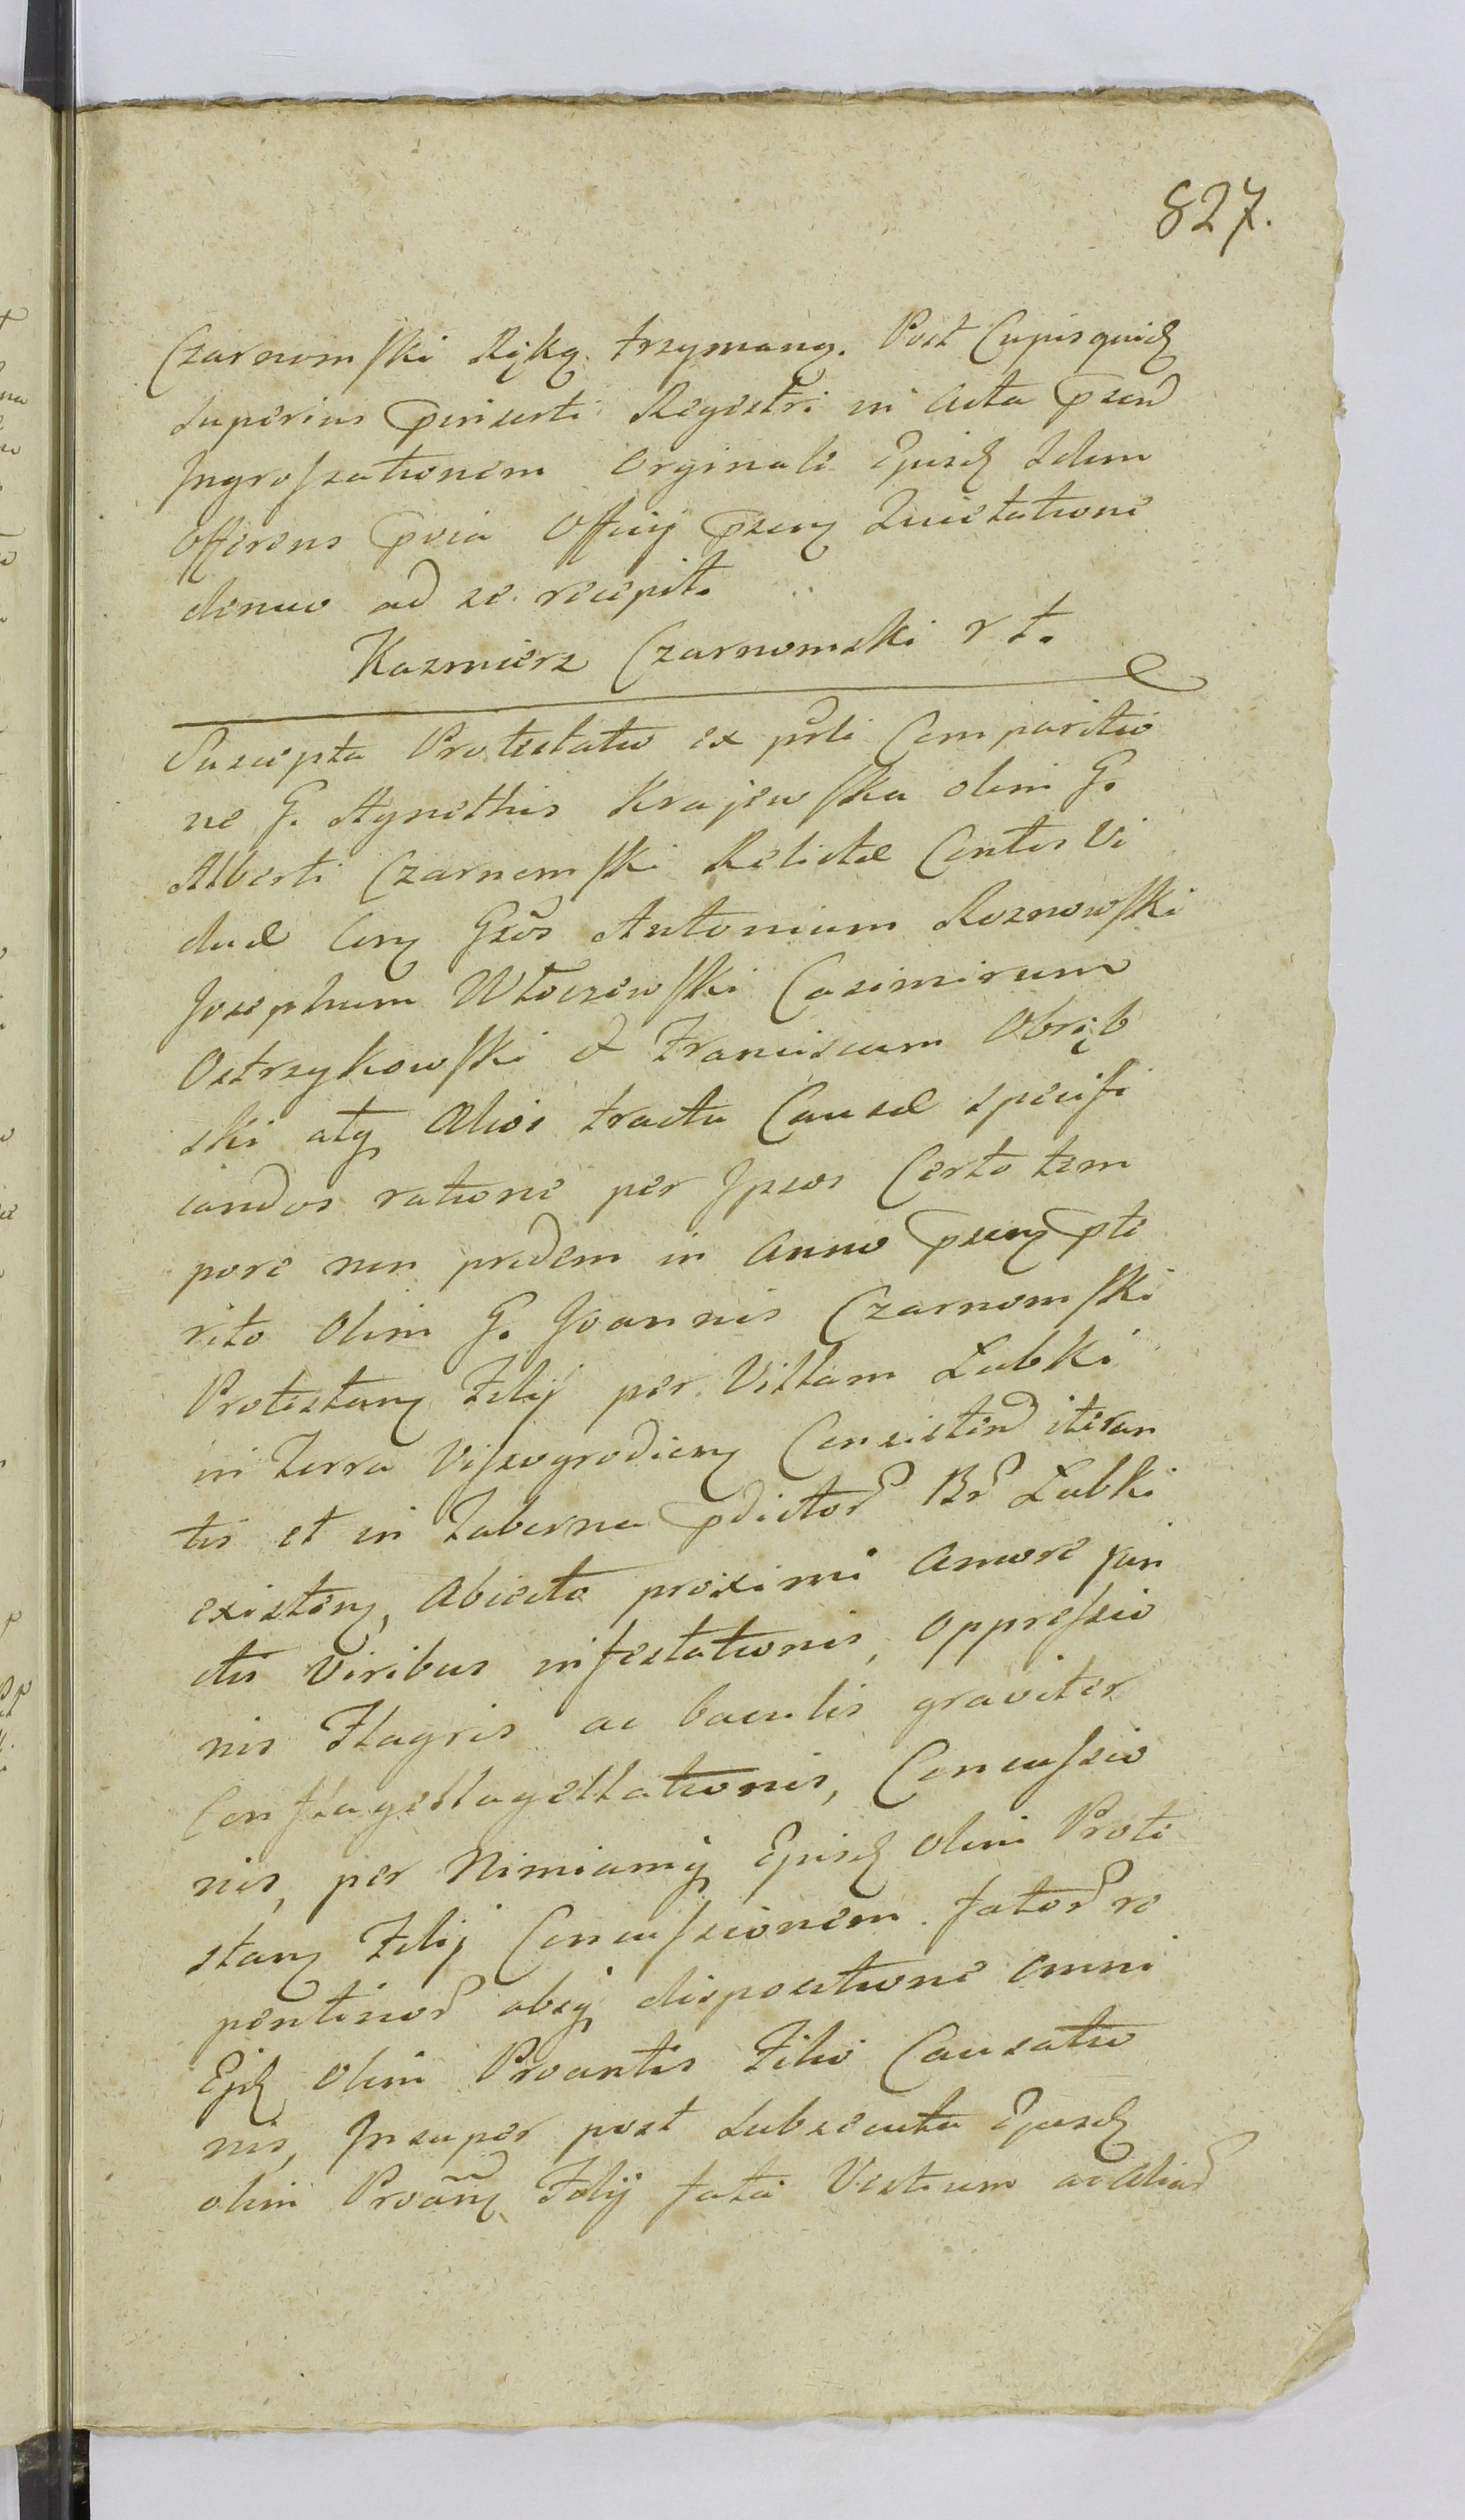 827.
Czarnomski Ręką trzymany. Post Cujusquid
Superius pinserti Regestri in Acta psend
Ingrossationem Orginale Ejusd Idem
Offerens pvia Officij psenę Quietatione
denuo ad se recepit.
Kazmierz Czarnomski rt.
Suscepta Protestatio ex psli Comparitio
ne G. Agnethis Krajewska olim G.
Alberti Czarnomski Relictæ Contes Vi
duæ Corę Gsõs Antonium Roznowski
Josephum Włoczewski Casimirum
Ostrzykowski et Franciscum Obręb
ski atq Alios tractu Causæ specifi
candos ratione per Ipsos Certo tem
pore non pridem in Anno psenę pte
rito Olim G. Joannis Czarnomski
Protestanę Filij per Villam Lubki
in Terra Vissogrodienę Consistend iteran
tis et in Taberna pdictor Br Lubki
existenę, Abiecto proximi Amore jun
ctis Viribus infestationis, Oppressio
nis Flagris ac baculis graviter
Conflagellagellationis, Concussio
nis, per Nimiamq Ejusd Olim Prote
stanę Filij Concussionem fator re
pentinor absq dispositione omni
Ejd Olim Proantis Filio Causatio
nis, Insuper post Subsecuta Ejusd
olim Proãnę Filij fata Vestium ac Aliar